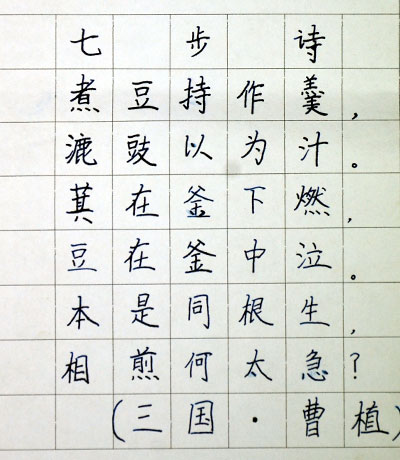 七步诗
煮豆持作羹，
漉豉以为汁。
萁在釜下燃，
豆在釜中泣。
本是同根生，
相煎何太急？
（三国·曹植）